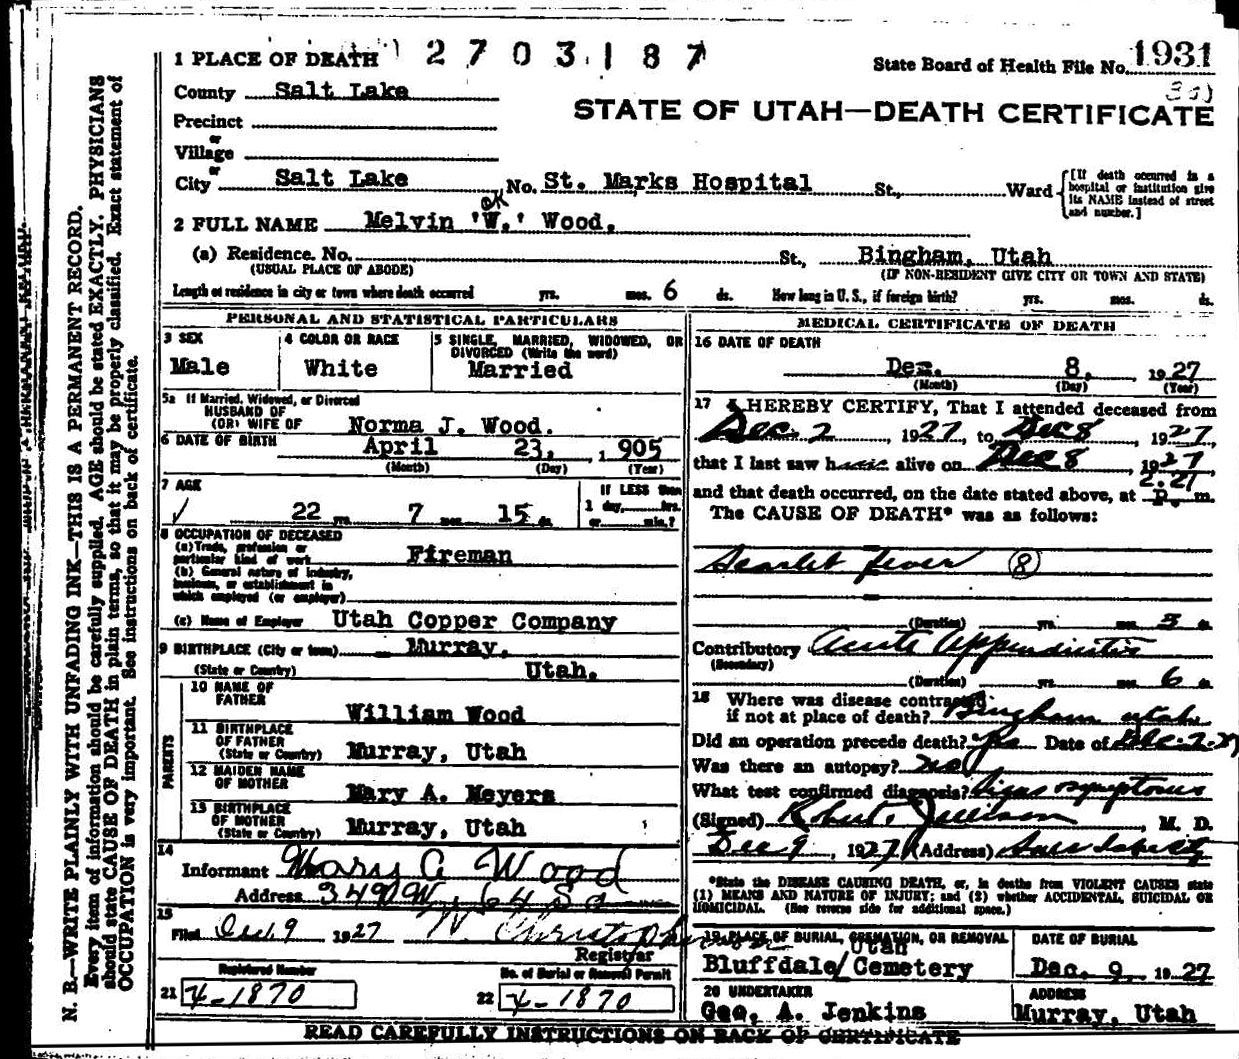 1 PLACE OF DEATH 2703187
State Board of Health File No. 1931
County Salt Lake
STATE OF UTAH—DEATH CERTIFICATE
Precinct
or
Village
or
City Salt Lake No. St. Marks Hospital St., Ward
[If death occurred in a hospital or institution give its NAME instead of street and number.]
OK
2 FULL NAME Melvin 'W.' Wood.
(a) Residence. No. St., Bingham, Utah
(USUAL PLACE OF ABODE) (IF NON-RESIDENT GIVE CITY OR TOWN AND STATE)
Length of residence in city or town where death occurred yrs. mos. 6 ds. How long in U. S., if foreign birth? yrs. mos. ds.
PERSONAL AND STATISTICAL PARTICULARS
3 SEX
Male
4 COLOR OR RACE
White
5 SINGLE, MARRIED, WIDOWED, OR DIVORCED (Write the word)
Married
5a If Married, Widowed, or Divorced
HUSBAND OF
(OR) WIFE OF Norma J. Wood.
6 DATE OF BIRTH April 23, 1905
(Month) (Day) (Year)
7 AGE
22 yrs. 7 mos. 15 ds.
If LESS than
1 day, hrs.
or min.?
8 OCCUPATION OF DECEASED
(a) Trade, profession or
particular kind of work Fireman
(b) General nature of industry,
business, or establishment in
which employed (or employer)
(c) Name of Employer Utah Copper Company
9 BIRTHPLACE (City or town) Murray,
(State or Country) Utah.
PARENTS
10 NAME OF
FATHER
William Wood
11 BIRTHPLACE
OF FATHER
(State or Country) Murray, Utah
12 MAIDEN NAME
OF MOTHER Mary A. Meyers
13 BIRTHPLACE
OF MOTHER
(State or Country) Murray, Utah
14
Informant Mary A Wood
Address 349 W. 64 So
15
Filed Dec. 9 1927
Registrar
Registered Number
21 4-1870
No. of Burial or Removal Permit
22 4-1870
MEDICAL CERTIFICATE OF DEATH
16 DATE OF DEATH
Dec. 8, 1927
(Month) (Day) (Year)
17 I HEREBY CERTIFY, That I attended deceased from
Dec. 2, 1927, to Dec 8, 1927,
that I last saw him alive on Dec 8, 1927
2:21
and that death occurred, on the date stated above, at P. m.
The CAUSE OF DEATH* was as follows:
Scarlet fever 8
(Duration) yrs. mos. 3 ds.
Contributory Acute Appendicitis
(Secondary)
(Duration) yrs. mos. 6 ds.
18 Where was disease contracted
if not at place of death? Bingham Utah
Did an operation precede death? Yes Date of Dec-2-27
Was there an autopsy? no
What test confirmed diagnosis? Signs symptoms
(Signed) Robert, M. D.
Dec 9, 1927 (Address) Salt Lake City
*State the DISEASE CAUSING DEATH, or, in deaths from VIOLENT CAUSES state
(1) MEANS AND NATURE OF INJURY; and (2) whether ACCIDENTAL, SUICIDAL OR
HOMICIDAL. (See reverse side for additional space.)
19 PLACE OF BURIAL, CREMATION, OR REMOVAL
Utah
Bluffdale/Cemetery
DATE OF BURIAL
Dec. 9, 1927
20 UNDERTAKER
Geo. A. Jenkins
ADDRESS
Murray, Utah
READ CAREFULLY INSTRUCTIONS ON BACK OF CERTIFICATE
N. B.—WRITE PLAINLY WITH UNFADING INK—THIS IS A PERMANENT RECORD.
Every item of information should be carefully supplied. AGE should be stated EXACTLY. PHYSICIANS
should state CAUSE OF DEATH in plain terms, so that it may be properly classified. Exact statement of
OCCUPATION is very important. See instructions on back of certificate.